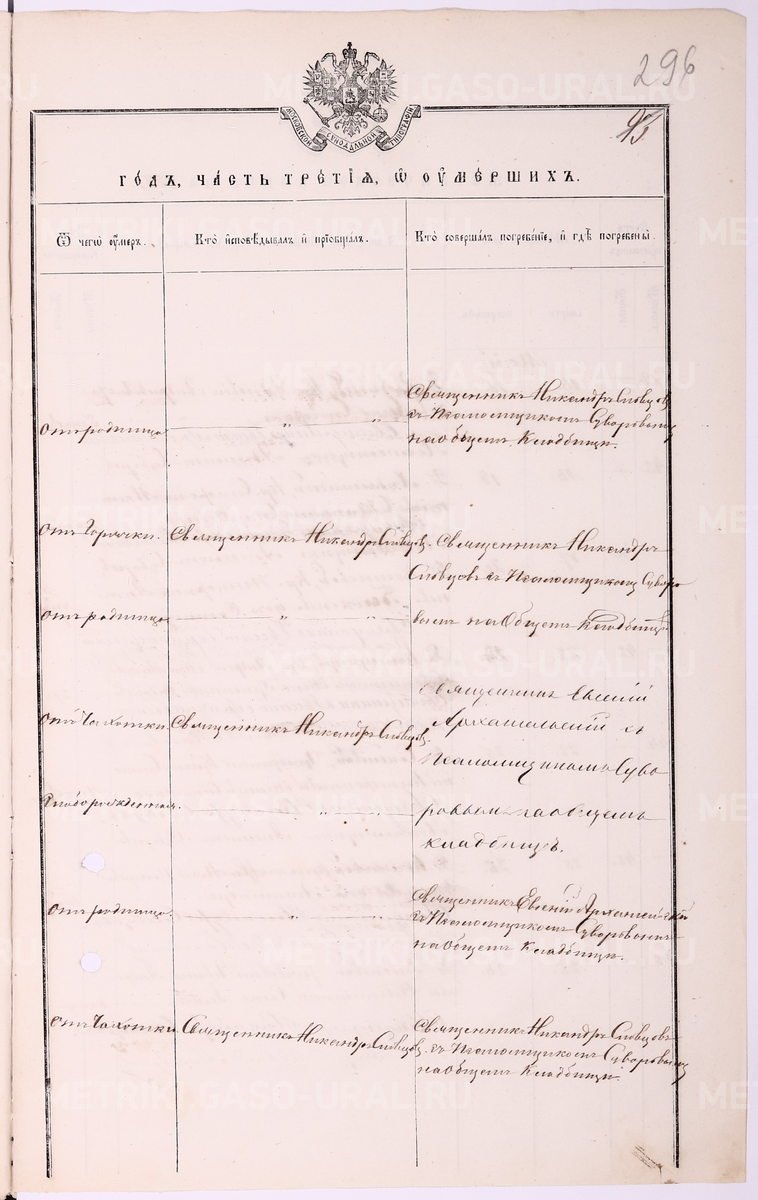 296
МОСКОВСКОЙ СѴНОДАЛЬНОЙ ТИПОГРАФІИ
ГО́ДЪ, ЧА́СТЬ ТРЕ́ТІѦ, Ѡ҆ ОУ҆МЕ́РШИХЪ.
Ѿ чегѡ̀ оу҆́меръ.
Кто̀ и҆сповѣ́дывалъ и҆ прїѡбща́лъ.
Кто̀ соверша́лъ погребе́нїе, и҆ гдѣ̀ погребены̀.
Отъ родимца
„ „
Священникъ Никандръ Словцовъ
съ Псаломщикомъ Суворовымъ
на общемъ Кладбищѣ.
Отъ Горячки.
Священникъ Никандръ Словцовъ.
Священникъ Никандръ
Словцовъ съ Псаломщикомъ Суворо
Отъ родимца
„ „
вымъ на Общемъ Кладбищѣ
Отъ Чахотки.
Священникъ Никандръ Словцовъ.
Священникъ Евгеній
Архангельскій съ
Псаломщикомъ Суво
Слаборожденная.
„ „
ровымъ на общемъ
кладбищѣ.
Отъ родимца.
„ „
Священникъ Евгеній Архангельскій
съ Псаломщикомъ Суворовымъ
на Общемъ Кладбищѣ.
Отъ Чахотки
Священникъ Никандръ Словцовъ.
Священникъ Никандръ Словцовъ
съ Псаломщикомъ Суворовымъ
на Общемъ Кладбищѣ.
METRIKI.GASO-URAL.RU